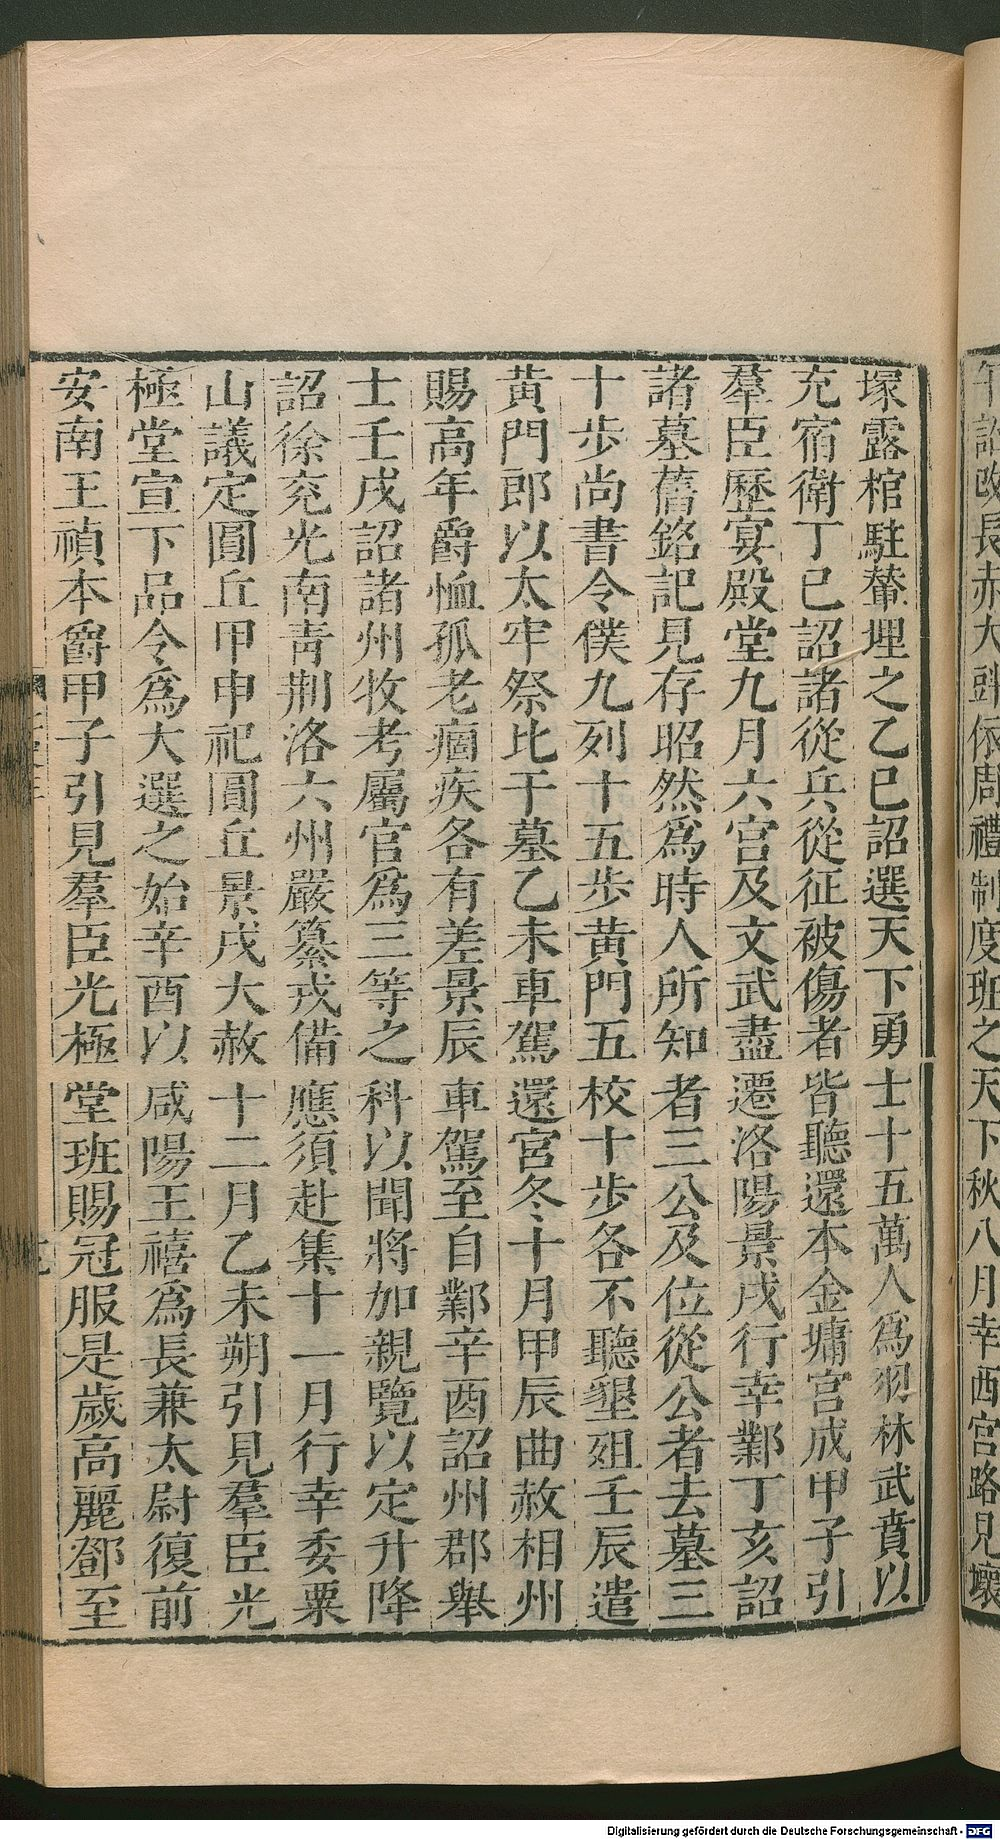 午詔改長赤大頭依周禮制度班之天下秋八月幸西宮路見壞
塚露棺駐輦埋之乙巳詔選天下勇士十五萬人爲羽林武賁以
充宿衛丁巳詔諸從兵從征被傷者皆聽還本金墉宮成甲子引
羣臣歷宴殿堂九月六宮及文武盡遷洛陽景戌行幸鄴丁亥詔
諸墓舊銘記見存昭然爲時人所知者三公及位從公者去墓三
十步尚書令僕九列十五步黃門五校十步各不聽墾姐壬辰遣
黃門郎以太牢祭比干墓乙未車駕還宮冬十月甲辰曲赦相州
賜高年爵恤孤老痼疾各有差景辰車駕至自鄴辛酉詔州郡舉
士壬戌詔諸州牧考屬官爲三等之科以聞將加親覽以定升降
詔徐兗光南青荆洛六州嚴纂戎備應須赴集十一月行幸委粟
山議定圓丘甲申祀圓丘景戌大赦十二月乙未朔引見羣臣光
極堂宣下品令爲大選之始辛酉以咸陽王禧爲長兼太尉復前
安南王禎本爵甲子引見羣臣光極堂班賜冠服是歲高麗鄧至
Digitalisierung gefördert durch die Deutsche Forschungsgemeinschaft - DFG